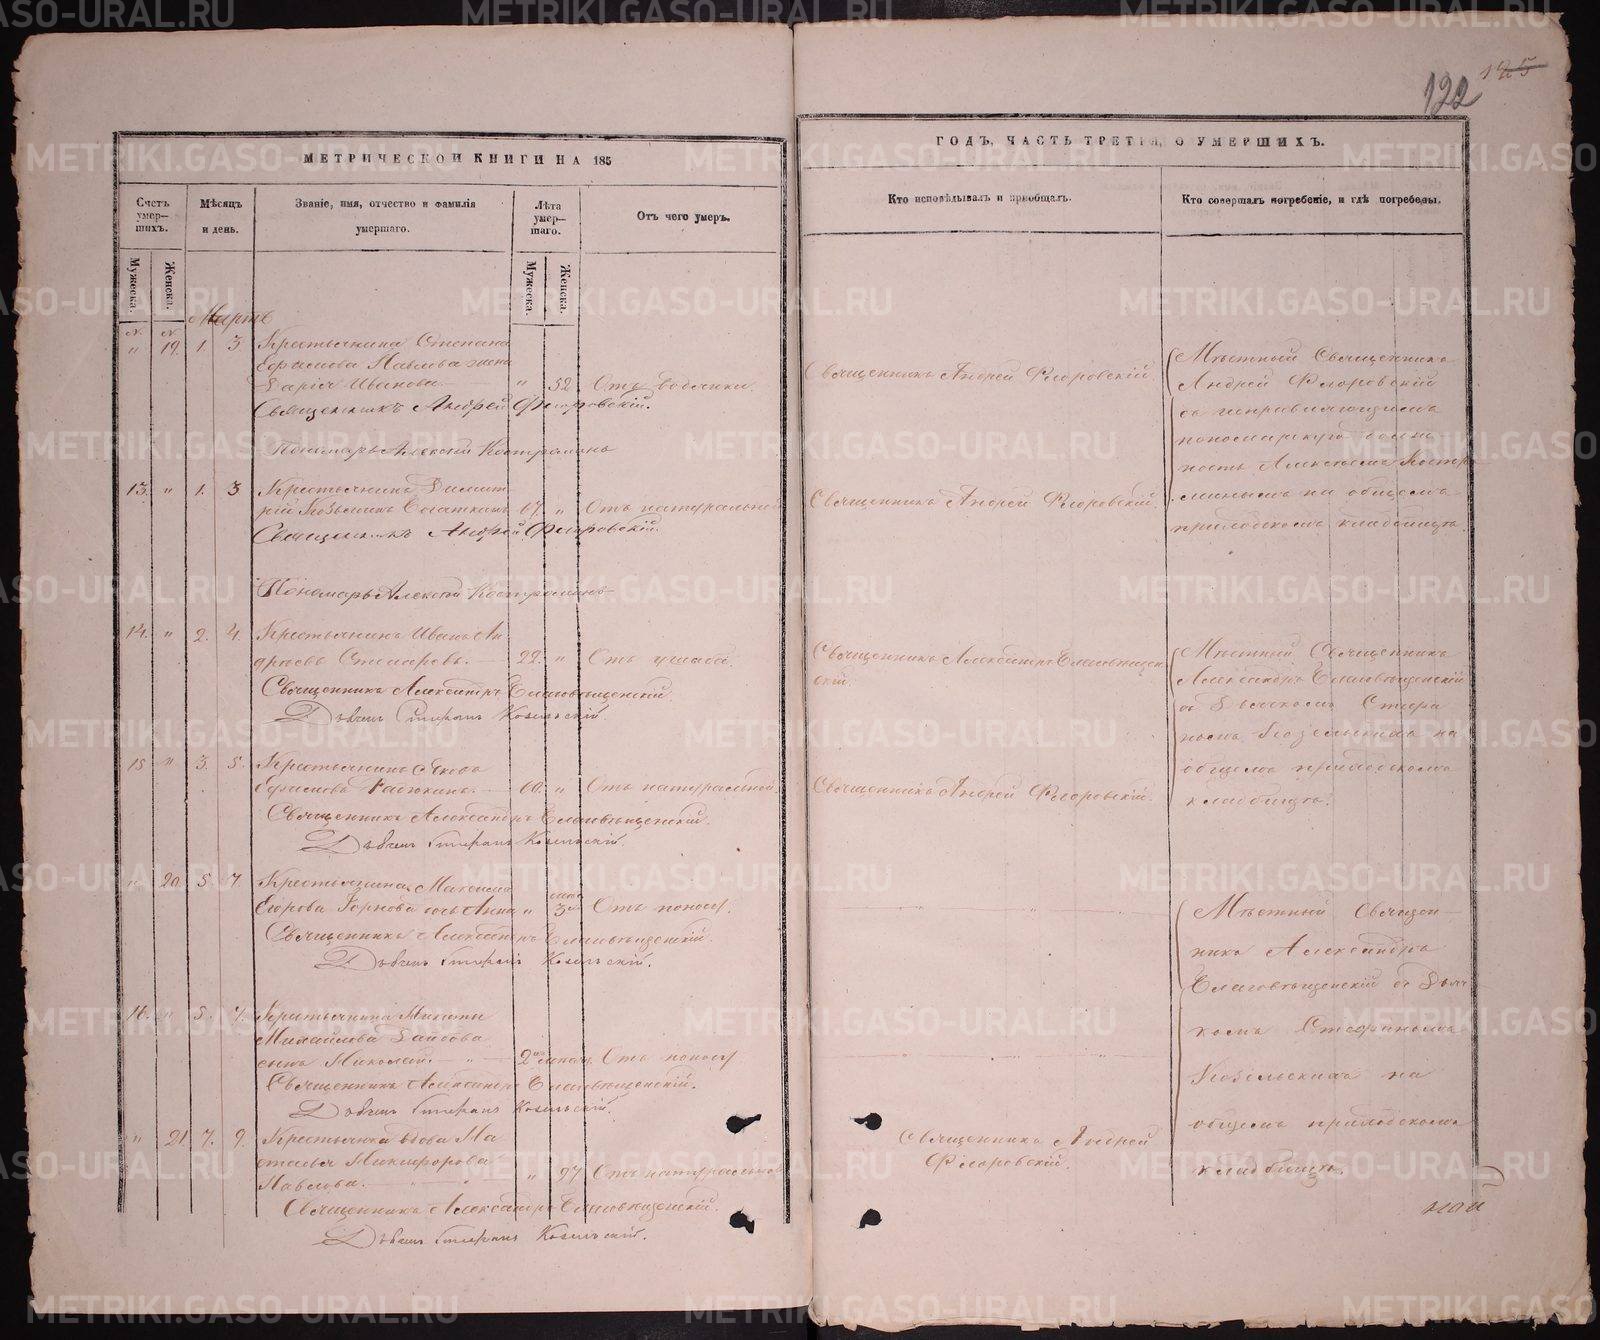 122 125
МЕТРИЧЕСКОЙ КНИГИ НА 185
ГОДЪ, ЧАСТЬ ТРЕТІЯ, О УМЕРШИХЪ.
Счетъ умер-
шихъ.
Мѣсяцъ
и день.
Званіе, имя, отчество и фамилія
умершаго.
Лѣта
умер-
шаго.
Отъ чего умеръ.
Кто исповѣдывалъ и пріобщалъ.
Кто совершалъ погребеніе, и гдѣ погребены.
Мужеска.
Женска.
Мужеска.
Женска.
Мартъ
" 19. 1. 3 Крестьянина Степана
Павлова жена
Дарья Иванова " 52. Отъ водянки.
Священникъ Андрей Флоровскій.
Пономарь Алексій
Священникъ Андрей Флоровскій
Мѣстный Священникъ
Андрей Флоровскій
съ исправляющимъ
пономарскую долж
ность Алексѣемъ Костр
минымъ на общемъ
приходскомъ кладбищѣ.
13. " 1. 3 Крестьянинъ Димит
рій 67. " Отъ натуральной
Священникъ Андрей Флоровскій.
Пономарь Алексій
Священникъ Андрей Флоровскій.
14. " 2. 4. Крестьянинъ Иванъ Ан
дреевъ 22. " Отъ
Священникъ Александръ Благовѣщенскій
Дьячекъ Стефанъ Козельскій.
Священникъ Александръ Благовѣщен
скій.
Мѣстный Священникъ
Александръ Благовѣщенскій
съ Дьячкомъ Стефа
номъ Козельскимъ на
общемъ приходскомъ
кладбищѣ.
15 " 3. 5. Крестьянинъ Яковъ
60. " Отъ натуральной
Священникъ Александръ Благовѣщенскій.
Дьячекъ Стефанъ Козельскій.
Священникъ Андрей Флоровскій.
" 20. 5. 7. Крестьянина Максима
Егорова дочь Анна " 3 Отъ поносу.
Священникъ Александръ Благовѣщенскій.
Дьячекъ Стефанъ Козельскій.
Мѣстный Священ
никъ Александръ
Благовѣщенскій съ Дьяч
комъ Стефаномъ
Козельскимъ на
общемъ приходскомъ
кладбищѣ.
16. " 5. 7. Крестьянина Никиты
Михайлова
сынъ Николай. 2 Отъ поносу
Священникъ Александръ Благовѣщенскій.
Дьячекъ Стефанъ Козельскій.
" 21. 7. 9. Крестьянка вдова На
талья Никифорова
Павлова. " 97 Отъ натуральной
Священникъ Александръ Благовѣщенскій.
Дьячекъ Стефанъ Козельскій.
Священникъ Андрей
Флоровскій.
METRIKI.GASO-URAL.RU